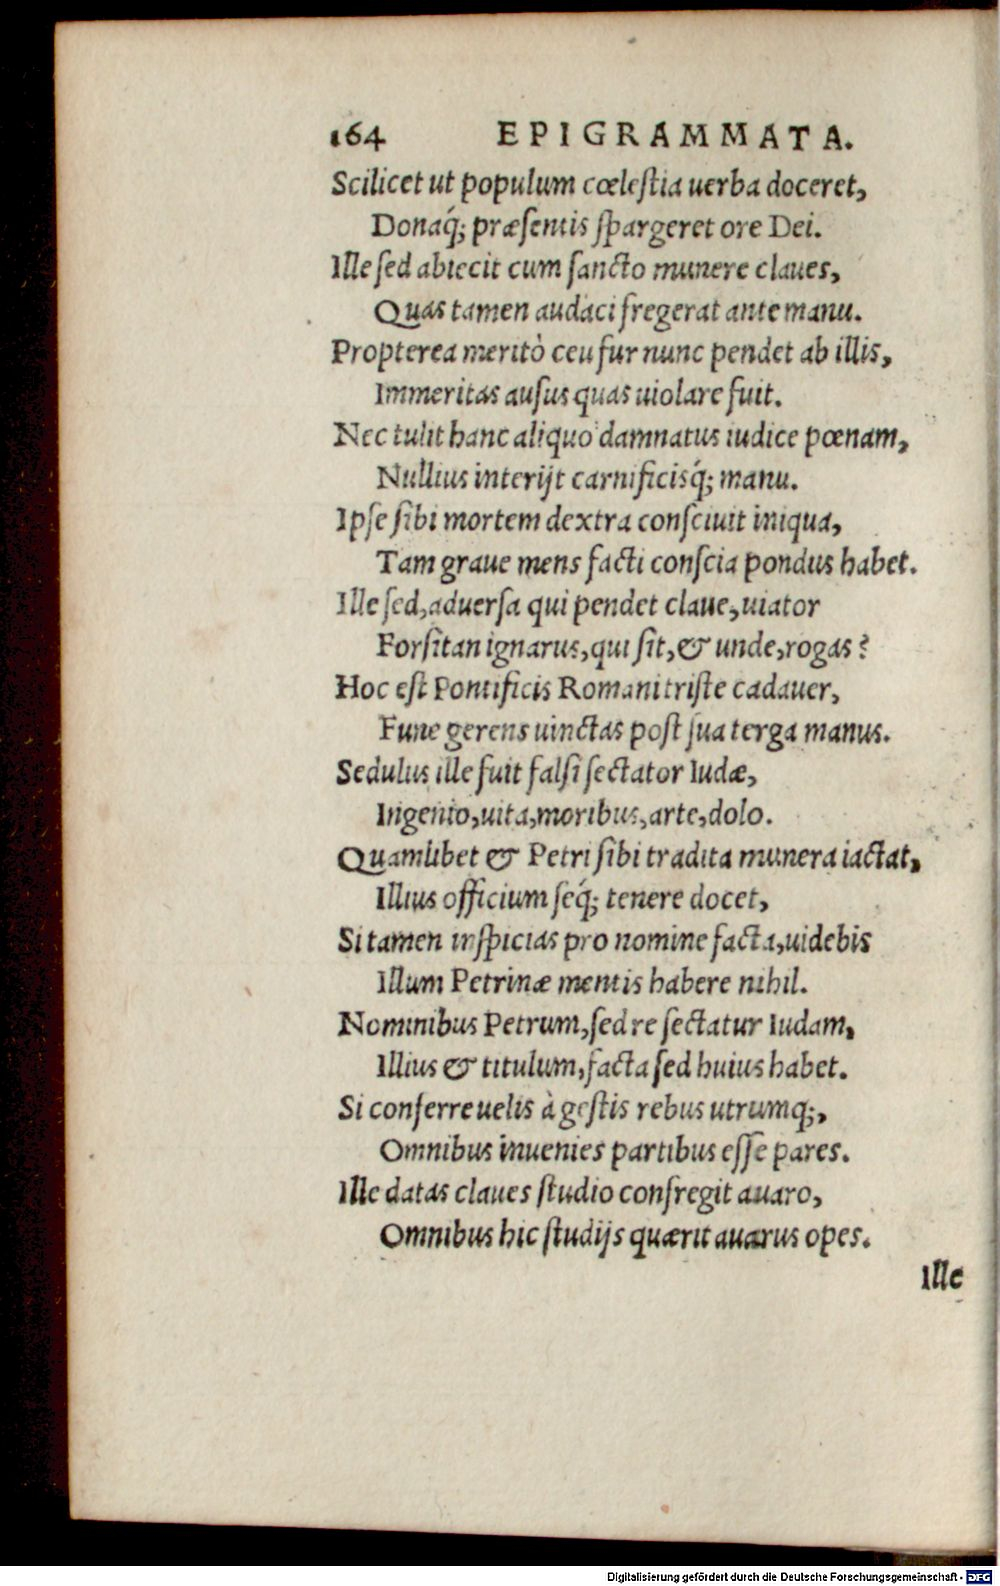 164 EPIGRAMMATA.
Scilicet ut populum cœlestia uerba doceret,
Donaq́; præsentis spargeret ore Dei.
Ille sed abiecit cum sancto munere claues,
Quas tamen audaci fregerat ante manu.
Propterea meritò ceu fur nunc pendet ab illis,
Immeritas ausus quas uiolare fuit.
Nec tulit hanc aliquo damnatus iudice pœnam,
Nullius interijt carnificisq́; manu.
Ipse sibi mortem dextra consciuit iniqua,
Tam graue mens facti conscia pondus habet.
Ille sed, aduersa qui pendet claue, uiator
Forsitan ignarus, qui sit, & unde, rogas?
Hoc est Pontificis Romani triste cadauer,
Fune gerens uinctas post sua terga manus.
Sedulus ille fuit falsi sectator Iudæ,
Ingenio, uita, moribus, arte, dolo.
Quamlibet & Petri sibi tradita munera iactat,
Illius officium seq́; tenere docet,
Si tamen inspicias pro nomine facta, uidebis
Illum Petrinæ mentis habere nihil.
Nominibus Petrum, sed re sectatur Iudam,
Illius & titulum, facta sed huius habet.
Si conferre uelis à gestis rebus utrumq;,
Omnibus inuenies partibus esse pares.
Ille datas claues studio confregit auaro,
Omnibus hic studijs quærit auarus opes.
Ille
Digitalisierung gefördert durch die Deutsche Forschungsgemeinschaft - DFG